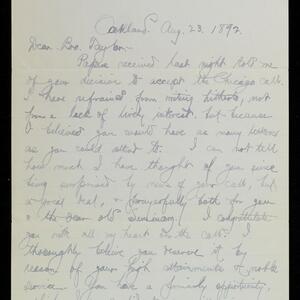 Oakland, Aug. 23, 1892.
Dear Bro. Taylor:-
Papers received last night told me
of your decision to accept the Chicago call.
I have refrained from writing hitherto, not
from a lack of lively interest, but because
I believed you would have as many letters
as you could attend to. I can not tell
how much I have thought of you since
being surprised by news of your call, but
a great deal, & prayerfully both for you
& the dear old Seminary. I congratulate
you with all my heart on the call. I
thoroughly believe you deserve it by
reason of your high attainments & noble
service. You have a princely opportunity,